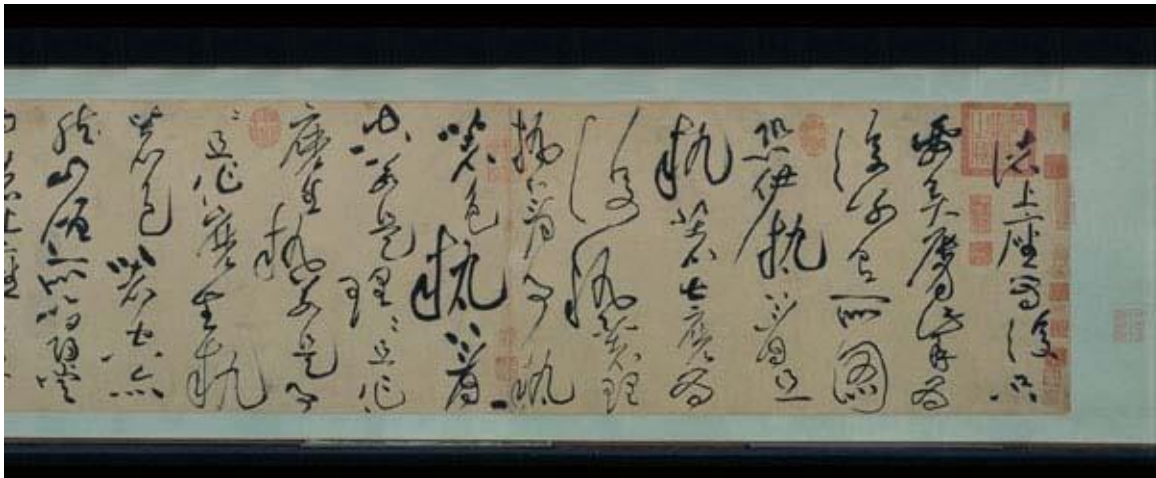 諸上座為復只
要弄脣觜為
復別有所圖
恐伊執著且
執著甚麼為
復執著理
執著事執
著色執著
空若是理〻且作
麼生執若是事
〻且作麼生執
著色著空亦
然山僧所以尋常